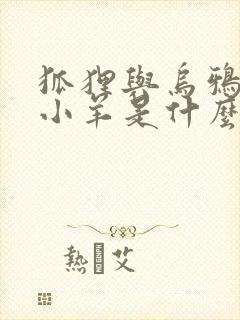 狐狸與烏鴉
小羊是什麼
熱 艾